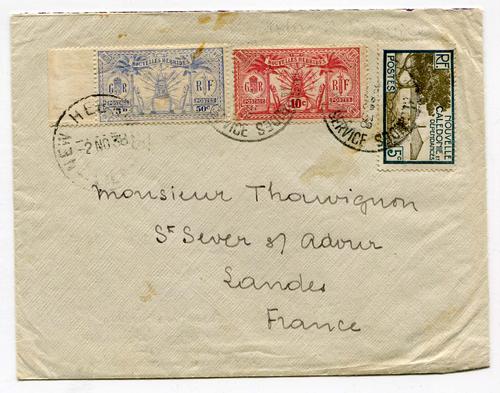 NOUVELLES HEBRIDES
GR RF
POSTAGE POSTES
5d 50c
NOUVELLES HEBRIDES
GR RF
POSTAGE POSTES
10c
RF
POSTES
NOUVELLE
CALEDONIE ET
DEPENDANCES
5c
NEW HE
2 NO 38
SERVICE
SERVICE
Monsieur Thouvignon
St Sever s/ Adour
Landes
France